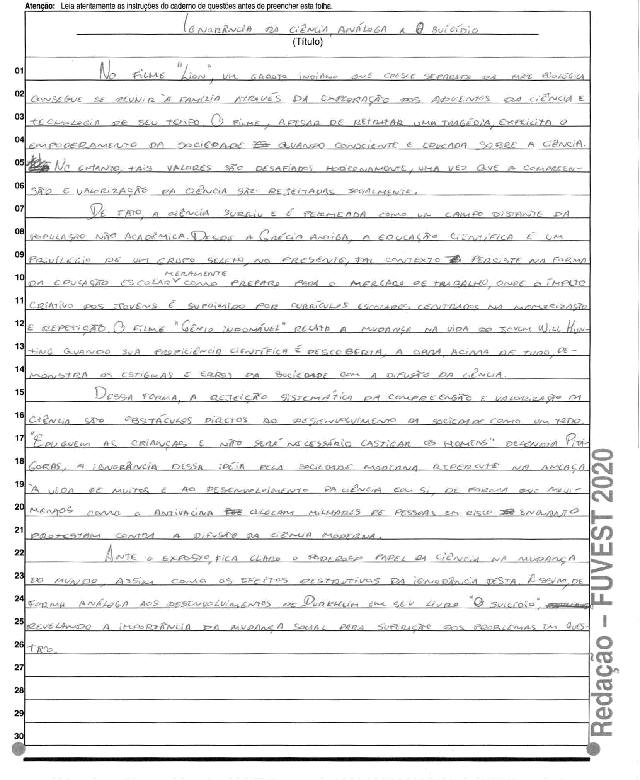 Atenção: Leia atentamente as instruções do caderno de questões antes de preencher esta folha.
IGNORÂNCIA DA CIÊNCIA, ANÁLOGA A O SUICÍDIO
(Título)
01 NO FILME "LION", UM GAROTO INDIANO QUE CRESCE SEPARADO DA MÃE BIOLÓGICA
02 CONSEGUE SE REUNIR À FAMÍLIA ATRAVÉS DA EXPLORAÇÃO DOS ADVENTOS DA CIÊNCIA E
03 TECNOLOGIA DE SEU TEMPO. O FILME, APESAR DE RETRATAR UMA TRAGÉDIA, EXPLICITA O
04 EMPODERAMENTO DA SOCIEDADE QUANDO CONSCIENTE E EDUCADA SOBRE A CIÊNCIA.
05 NO ENTANTO, TAIS VALORES SÃO DESAFIADOS MODERNAMENTE, UMA VEZ QUE A COMPREEN-
06 SÃO E VALORIZAÇÃO DA CIÊNCIA SÃO REJEITADAS SOCIALMENTE.
07 DE FATO, A CIÊNCIA SURGIU E É PERMEADA COMO UM CAMPO DISTANTE DA
08 POPULAÇÃO NÃO ACADÊMICA. DESDE A GRÉCIA ANTIGA, A EDUCAÇÃO CIENTÍFICA É UM
09 PRIVILÉGIO DE UM GRUPO SELETO, NO PRESENTE, TAL CONTEXTO PERSISTE NA FORMA
MERAMENTE
10 DA EDUCAÇÃO ESCOLAR COMO PREPARO PARA O MERCADO DE TRABALHO, ONDE O ÍMPETO
11 CRIATIVO DOS JOVENS É SUPRIMIDO POR CURRÍCULOS ESCOLARES CENTRADOS NA MEMORIZAÇÃO
12 E REPETIÇÃO. O FILME "GÊNIO INDOMÁVEL" RELATA A MUDANÇA NA VIDA DO JOVEM WILL HUN-
13 TING QUANDO SUA PROFICIÊNCIA CIENTÍFICA É DESCOBERTA, A OBRA, ACIMA DE TUDO, DE-
14 MONSTRA OS ESTIGMAS E ERROS DA SOCIEDADE COM A DIFUSÃO DA CIÊNCIA.
15 DESSA FORMA, A REJEIÇÃO SISTEMÁTICA DA COMPREENSÃO E VALORIZAÇÃO DA
16 CIÊNCIA SÃO OBSTÁCULOS DIRETOS AO DESENVOLVIMENTO DA SOCIEDADE COMO UM TODO.
17 "EDUQUEM AS CRIANÇAS E NÃO SERÁ NECESSÁRIO CASTIGAR OS HOMENS" DEFENDIA PITÁ-
18 GORAS, A IGNORÂNCIA DESSA IDÉIA PELA SOCIEDADE MODERNA REPERCUTE NA AMEAÇA
19 À VIDA DE MUITOS E AO DESENVOLVIMENTO DA CIÊNCIA EM SI, DE FORMA QUE MOVI-
20 MENTOS COMO O ANTIVACINA COLOCAM MILHARES DE PESSOAS EM RISCO ENQUANTO
21 PROTESTAM CONTRA A DIFUSÃO DA CIÊNCIA MODERNA.
22 ANTE O EXPOSTO, FICA CLARO O PODEROSO PAPEL DA CIÊNCIA NA MUDANÇA
23 DO MUNDO, ASSIM COMO OS EFEITOS DESTRUTIVOS DA IGNORÂNCIA DESTA. ASSIM, DE
24 FORMA ANÁLOGA AOS DESENVOLVIMENTOS DE DURKHEIM EM SEU LIVRO "O SUICÍDIO",
25 REVELANDO A IMPORTÂNCIA DA MUDANÇA SOCIAL PARA SUPERAÇÃO DOS PROBLEMAS EM QUES-
26 TÃO.
27
28
29
30
Redação – FUVEST 2020